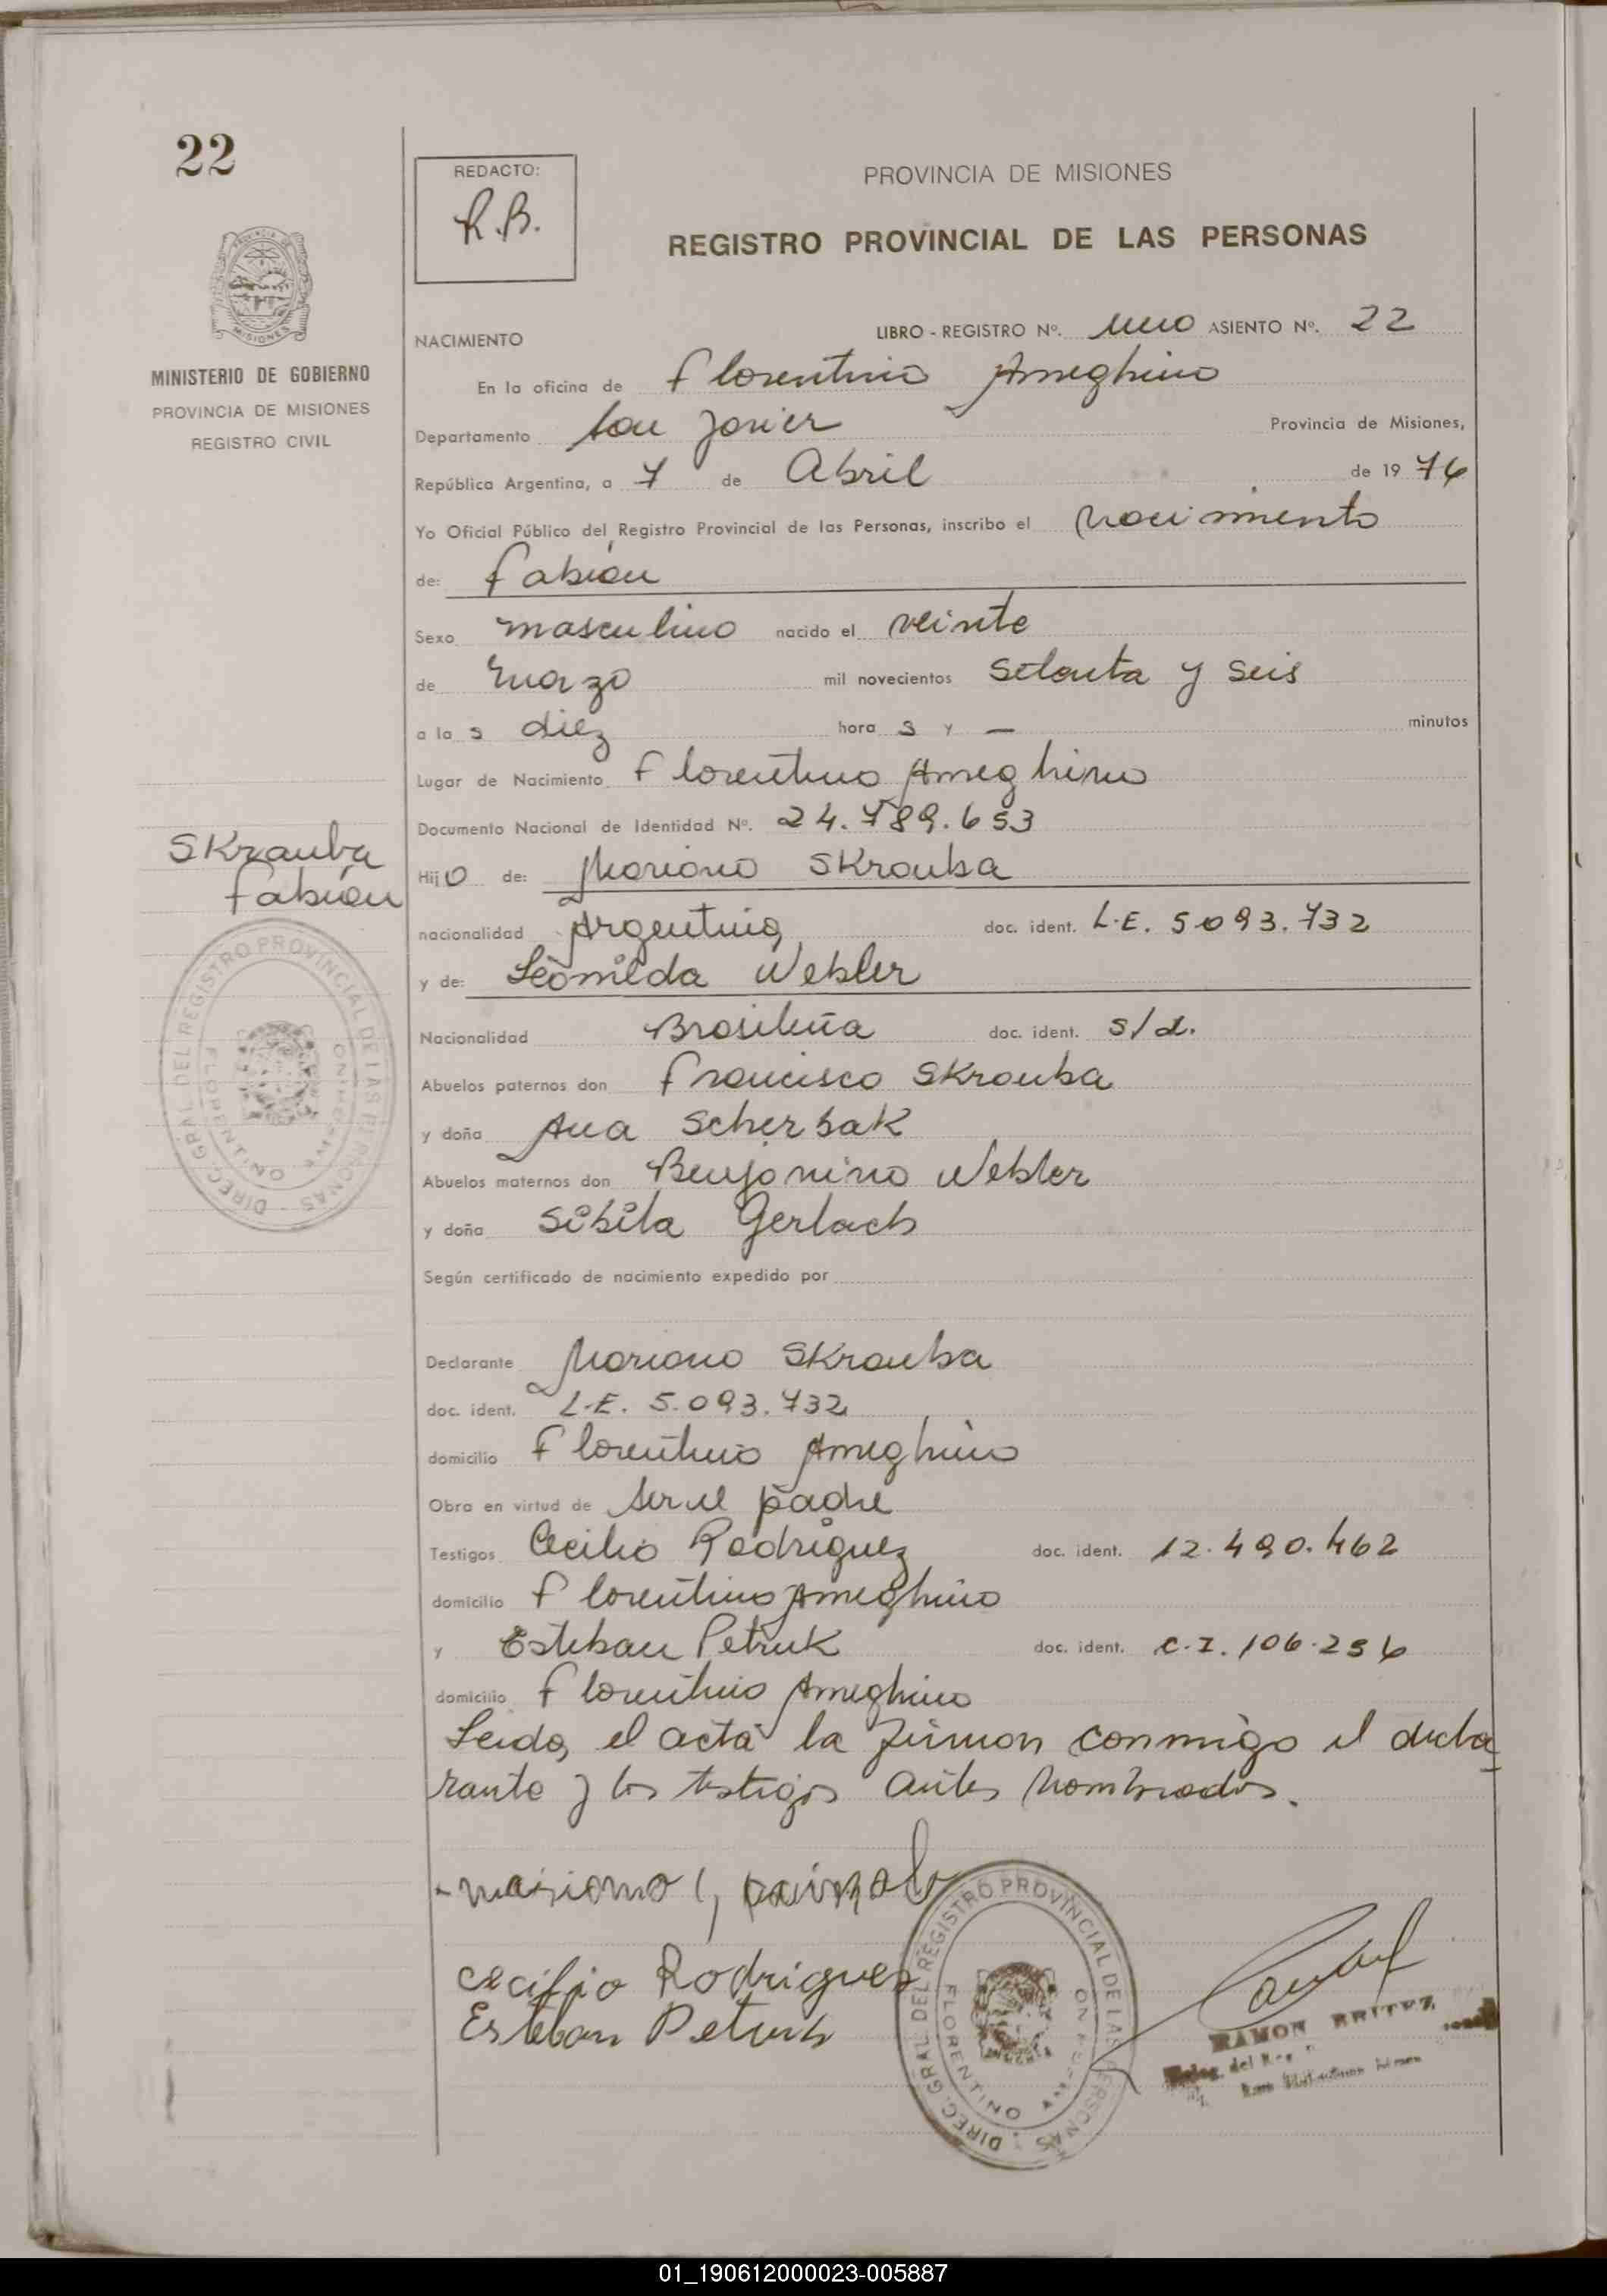 22
REDACTO:
R.B.
PROVINCIA DE MISIONES
REGISTRO PROVINCIAL DE LAS PERSONAS
MINISTERIO DE GOBIERNO
PROVINCIA DE MISIONES
REGISTRO CIVIL
NACIMIENTO
LIBRO - REGISTRO Nº. uno ASIENTO Nº. 22
En la oficina de Florentino Ameghino
Departamento San Javier Provincia de Misiones,
República Argentina, a 7 de Abril de 1976
Yo Oficial Público del Registro Provincial de las Personas, inscribo el Nacimiento
de: Fabián
Sexo masculino nacido el veinte
de Marzo mil novecientos setenta y seis
a la s diez hora s y — minutos
Lugar de Nacimiento Florentino Ameghino
Documento Nacional de Identidad Nº. 24.789.653
Skrauba
Fabián
Hijo de: Mariano Skrauba
nacionalidad Argentina doc. ident. L.E. 5.093.732
y de: Leonilda Webler
Nacionalidad Brasileña doc. ident. s/d.
Abuelos paternos don Francisco Skrauba
y doña Ana Scherbak
Abuelos maternos don Benjamino Webler
y doña Sibila Gerlach
Según certificado de nacimiento expedido por
Declarante Mariano Skrauba
doc. ident. L.E. 5.093.732
domicilio Florentino Ameghino
Obra en virtud de ser el padre
Testigos Cecilio Rodriguez doc. ident. 12.490.462
domicilio Florentino Ameghino
y Esteban Petruk doc. ident. C.I. 106.256
domicilio Florentino Ameghino
Leida el acta la firman conmigo el decla
rante y los testigos antes nombrados.
mariano
cecilio Rodrigues
Esteban Petruk
DIREC. GRAL. DEL REGISTRO PROVINCIAL DE LAS PERSONAS
FLORENTINO AMEGHINO
DIREC. GRAL. DEL REGISTRO PROVINCIAL DE LAS PERSONAS
FLORENTINO AMEGHINO
RAMON BRITEZ
01_190612000023-005887